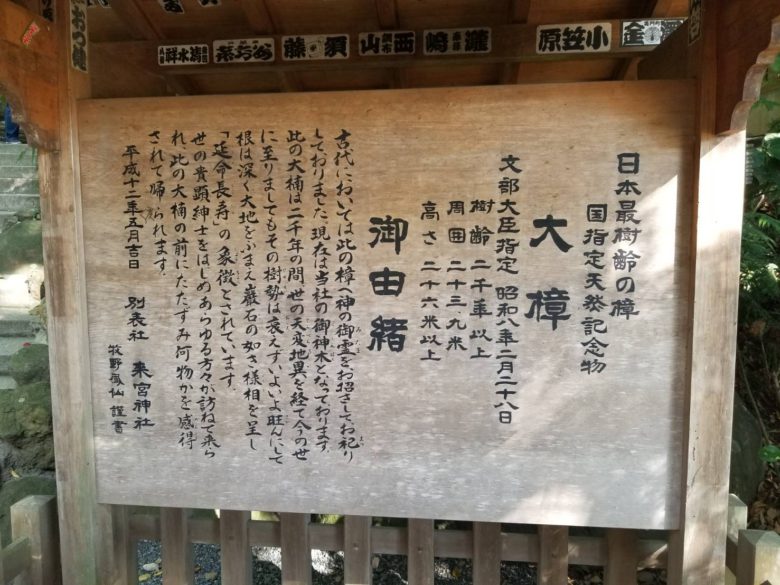 日本最樹齢の樟
国指定天然記念物
大樟
文部大臣指定 昭和八年二月二十八日
樹齢 二千年以上
周囲 二十三.九米
高さ 二十六米以上
御由緒
古代においては此の樟へ神の御霊をお招きしてお祀り
しておりました。現在は当社の御神木となっております。
此の大楠は二千年の間世の天変地異を経て今の世
に至りましてもその樹勢は衰えずいよいよ旺んにして
根は深く大地をふまえ巌石の如き様相を呈し
「延命長寿」の象徴とされています。
世の貴顕紳士をはじめあらゆる方々が訪ねて来ら
れ、此の大楠の前にたたずみ何物かを感得
されて帰られます。
平成十二年五月吉日 別表社 来宮神社
牧野風仙 謹書
小笠原
西山
須藤
清水祥